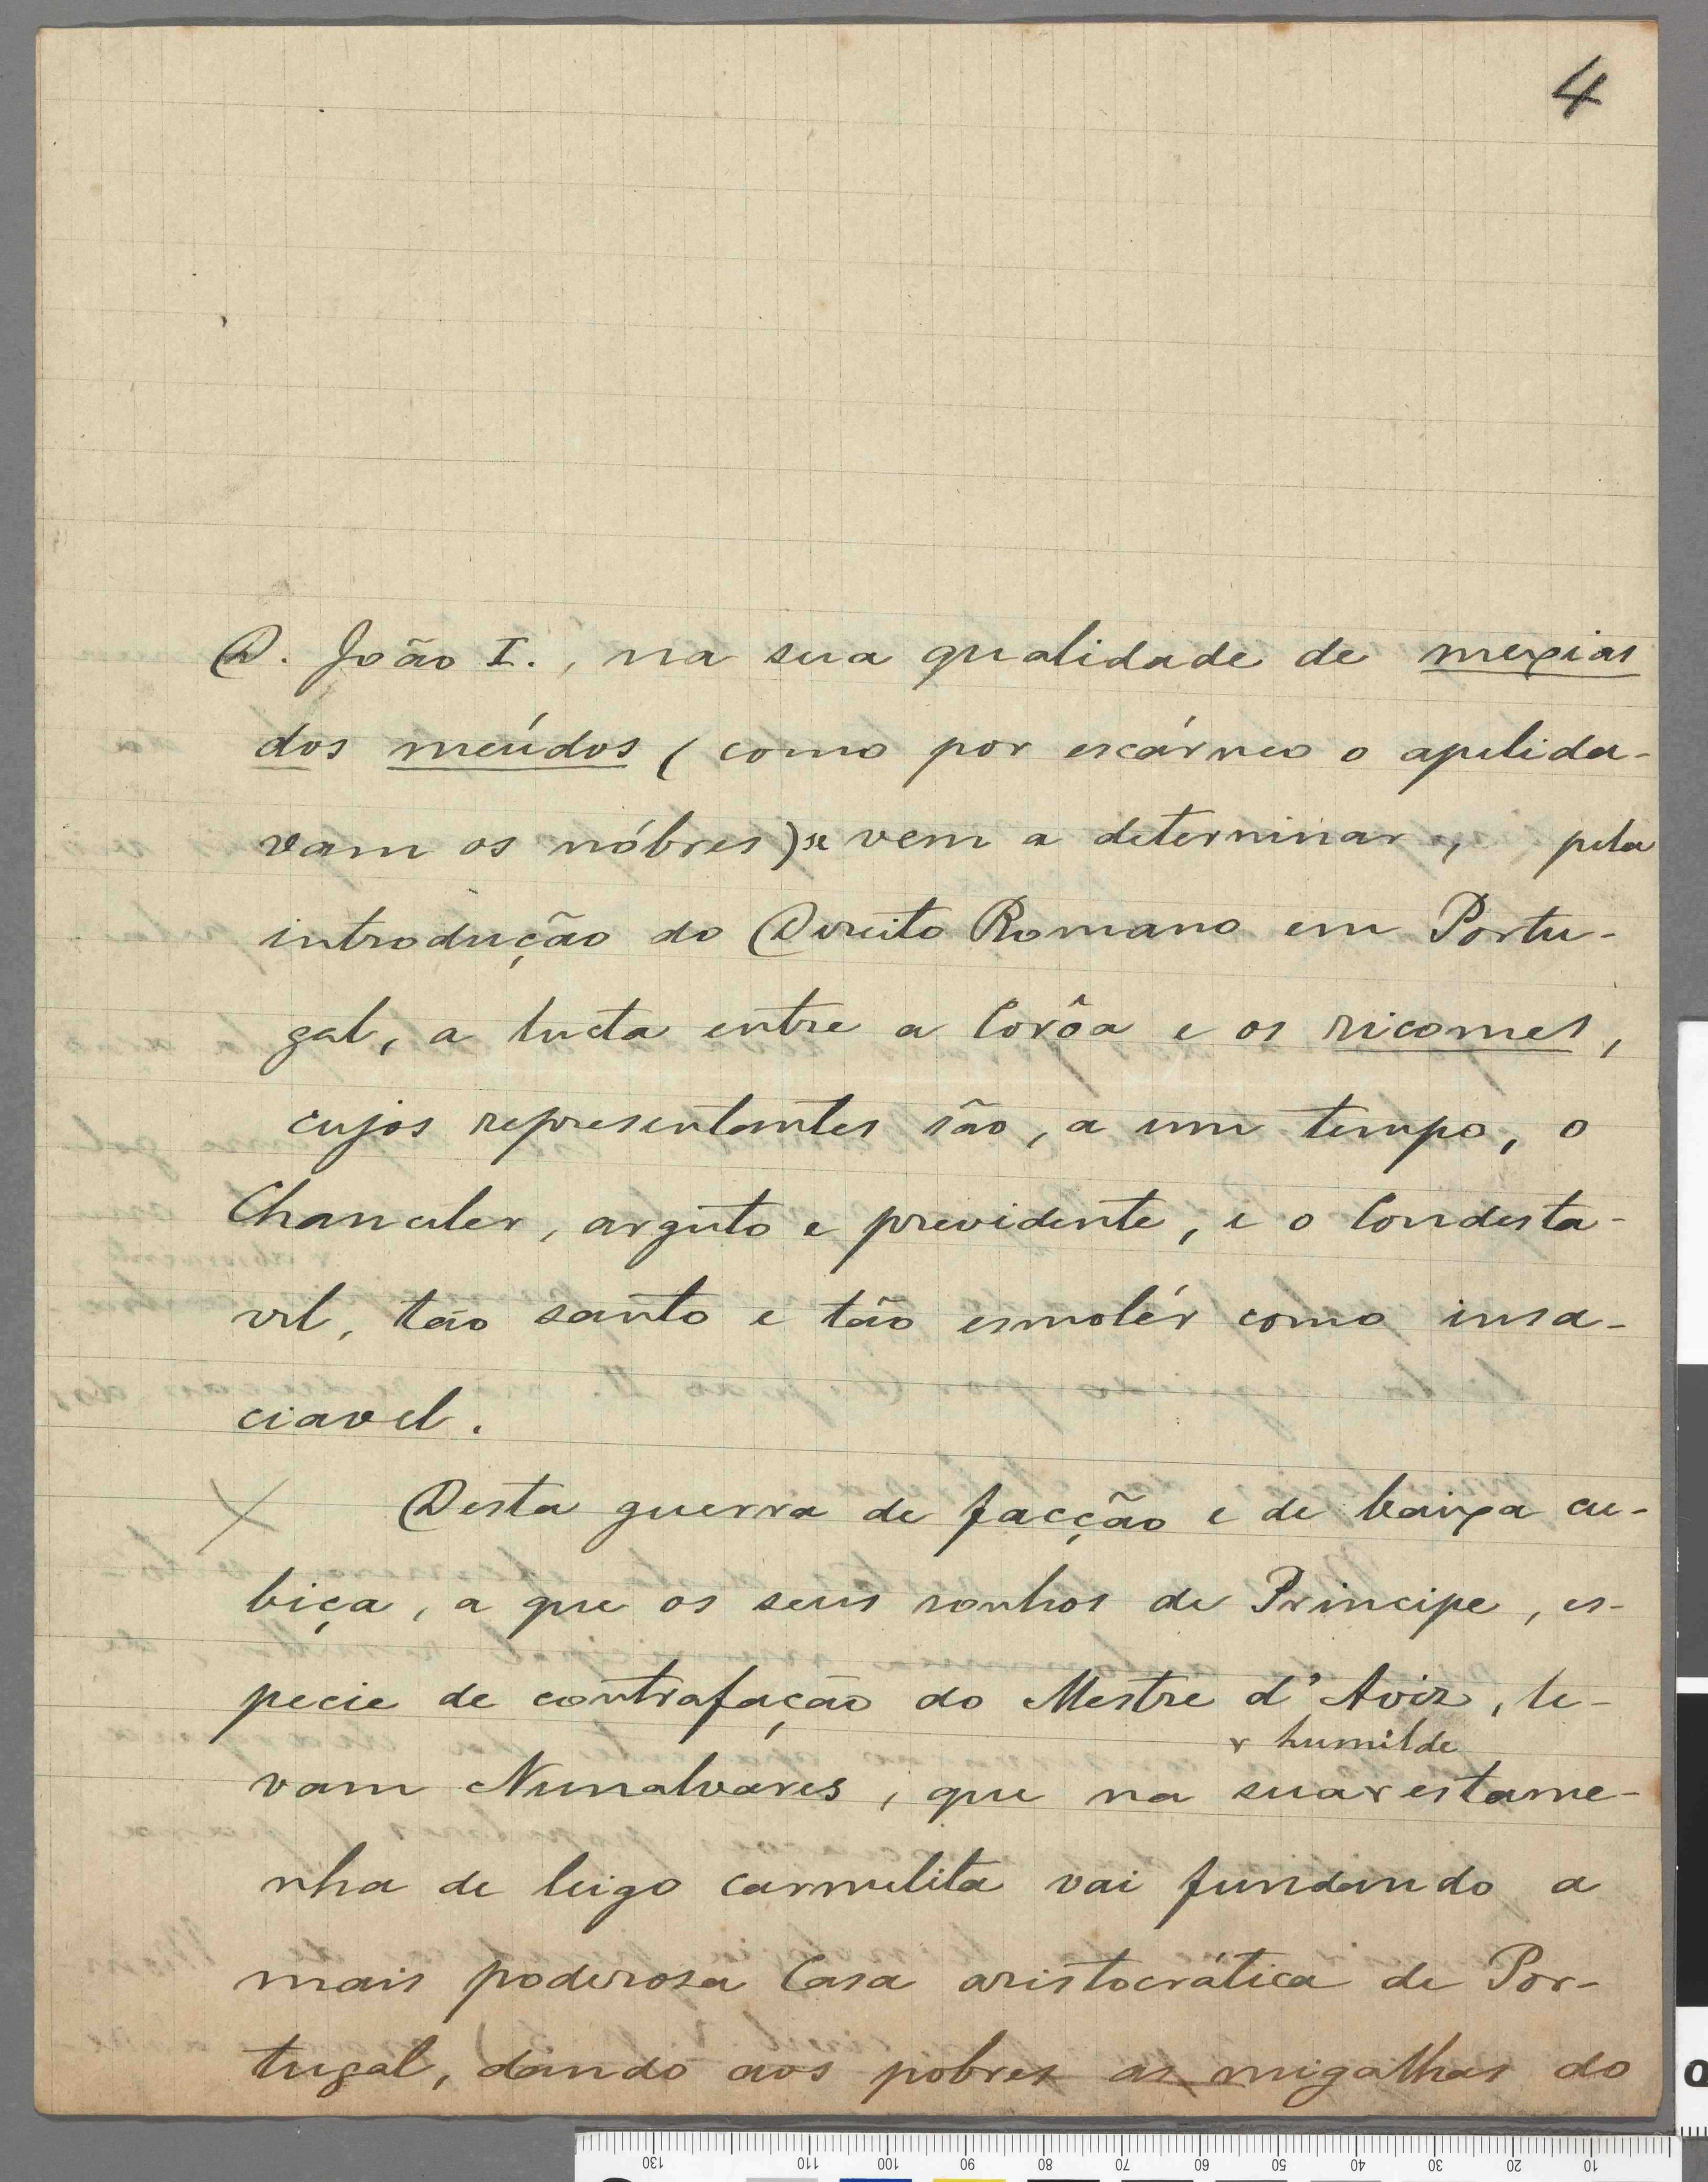 4
D. João I., na sua qualidade de mexias
dos meúdos (como por escárneo o apelida-
vam os nóbres) se vem a determinar, pela
introdução do Direito Romano em Portu-
gal, a lucta entre a Corôa e os ricomes,
cujos representantes são, a um tempo, o
Chanceler, arguto e previdente, e o Condesta-
vel, tão santo e tão esmolér como insa-
ciavel.
Desta guerra de facção e de baixa cu-
biça, a que os seus sonhos de Principe, es-
pecie de contrafação do Mestre d'Aviz, le-
humilde
vam Nunalvares, que na sua estame-
nha de leigo carmelita vai fundando a
mais poderosa Casa aristocrática de Por-
tugal, dando aos pobres as migalhas do
130 110 100 90 80 70 60 50 40 30 20 10